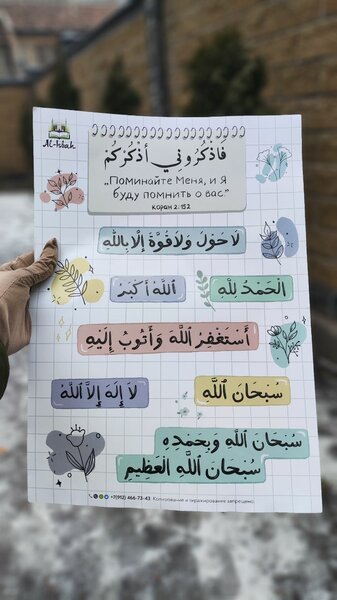 Al-kbah
فَاذْكُرُونِي أَذْكُرْكُمْ
„Поминайте Меня, и Я
буду помнить о вас”
Коран 2:152
لَا حَوْلَ وَلَا قُوَّةَ إِلَّا بِاللّٰهِ
اَللّٰهُ أَكْبَرُ
الْحَمْدُ لِلّٰهِ
أَسْتَغْفِرُ اللّٰهَ وَأَتُوبُ إِلَيْهِ
سُبْحَانَ اللّٰهِ
لَا إِلَهَ إِلَّا اللّٰهُ
سُبْحَانَ اللّٰهِ وَبِحَمْدِهِ
سُبْحَانَ اللّٰهِ الْعَظِيمِ
+7(912) 466-73-43 Копирование и тиражирование запрещено.